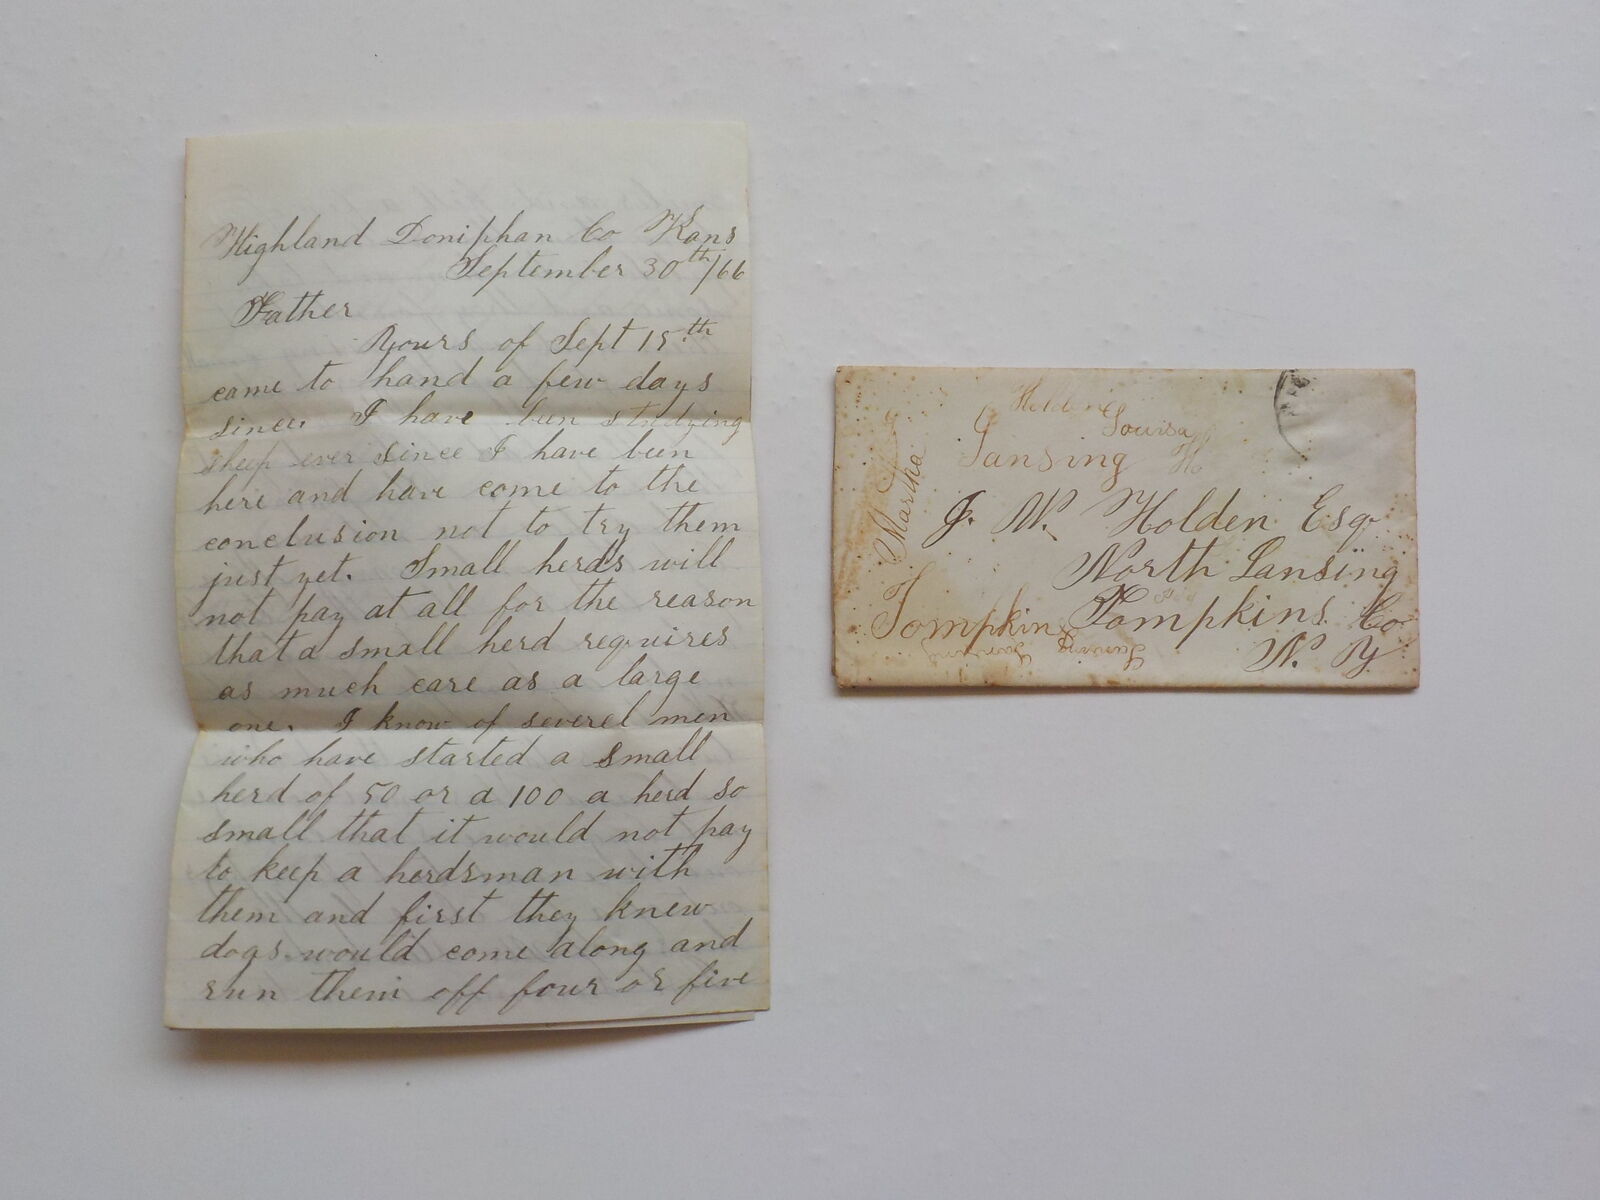 Highland Doniphan Co Kans
September 30th/66
Father
Yours of Sept 15th
came to hand a few days
since. I have bun studying
sheep ever since I have been
here and have come to the
conclusion not to try them
just yet. Small herds will
not pay at all for the reason
that a small herd requires
as much care as a large
one. I know of severel men
who have started a small
herd of 50 or a 100 a herd so
small that it would not pay
to keep a herdsman with
them and first they knew
dogs would come along and
run them off four or five
Holden
Louisa
Lansing Ho
Martha
J. W. Holden Esq
North Lansing
Tompkins Co
N. Y
Tompkin
Lansing
Lansing